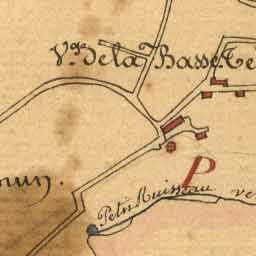 V.ge de la Basse Te
P
Petit Ruisseau
ve